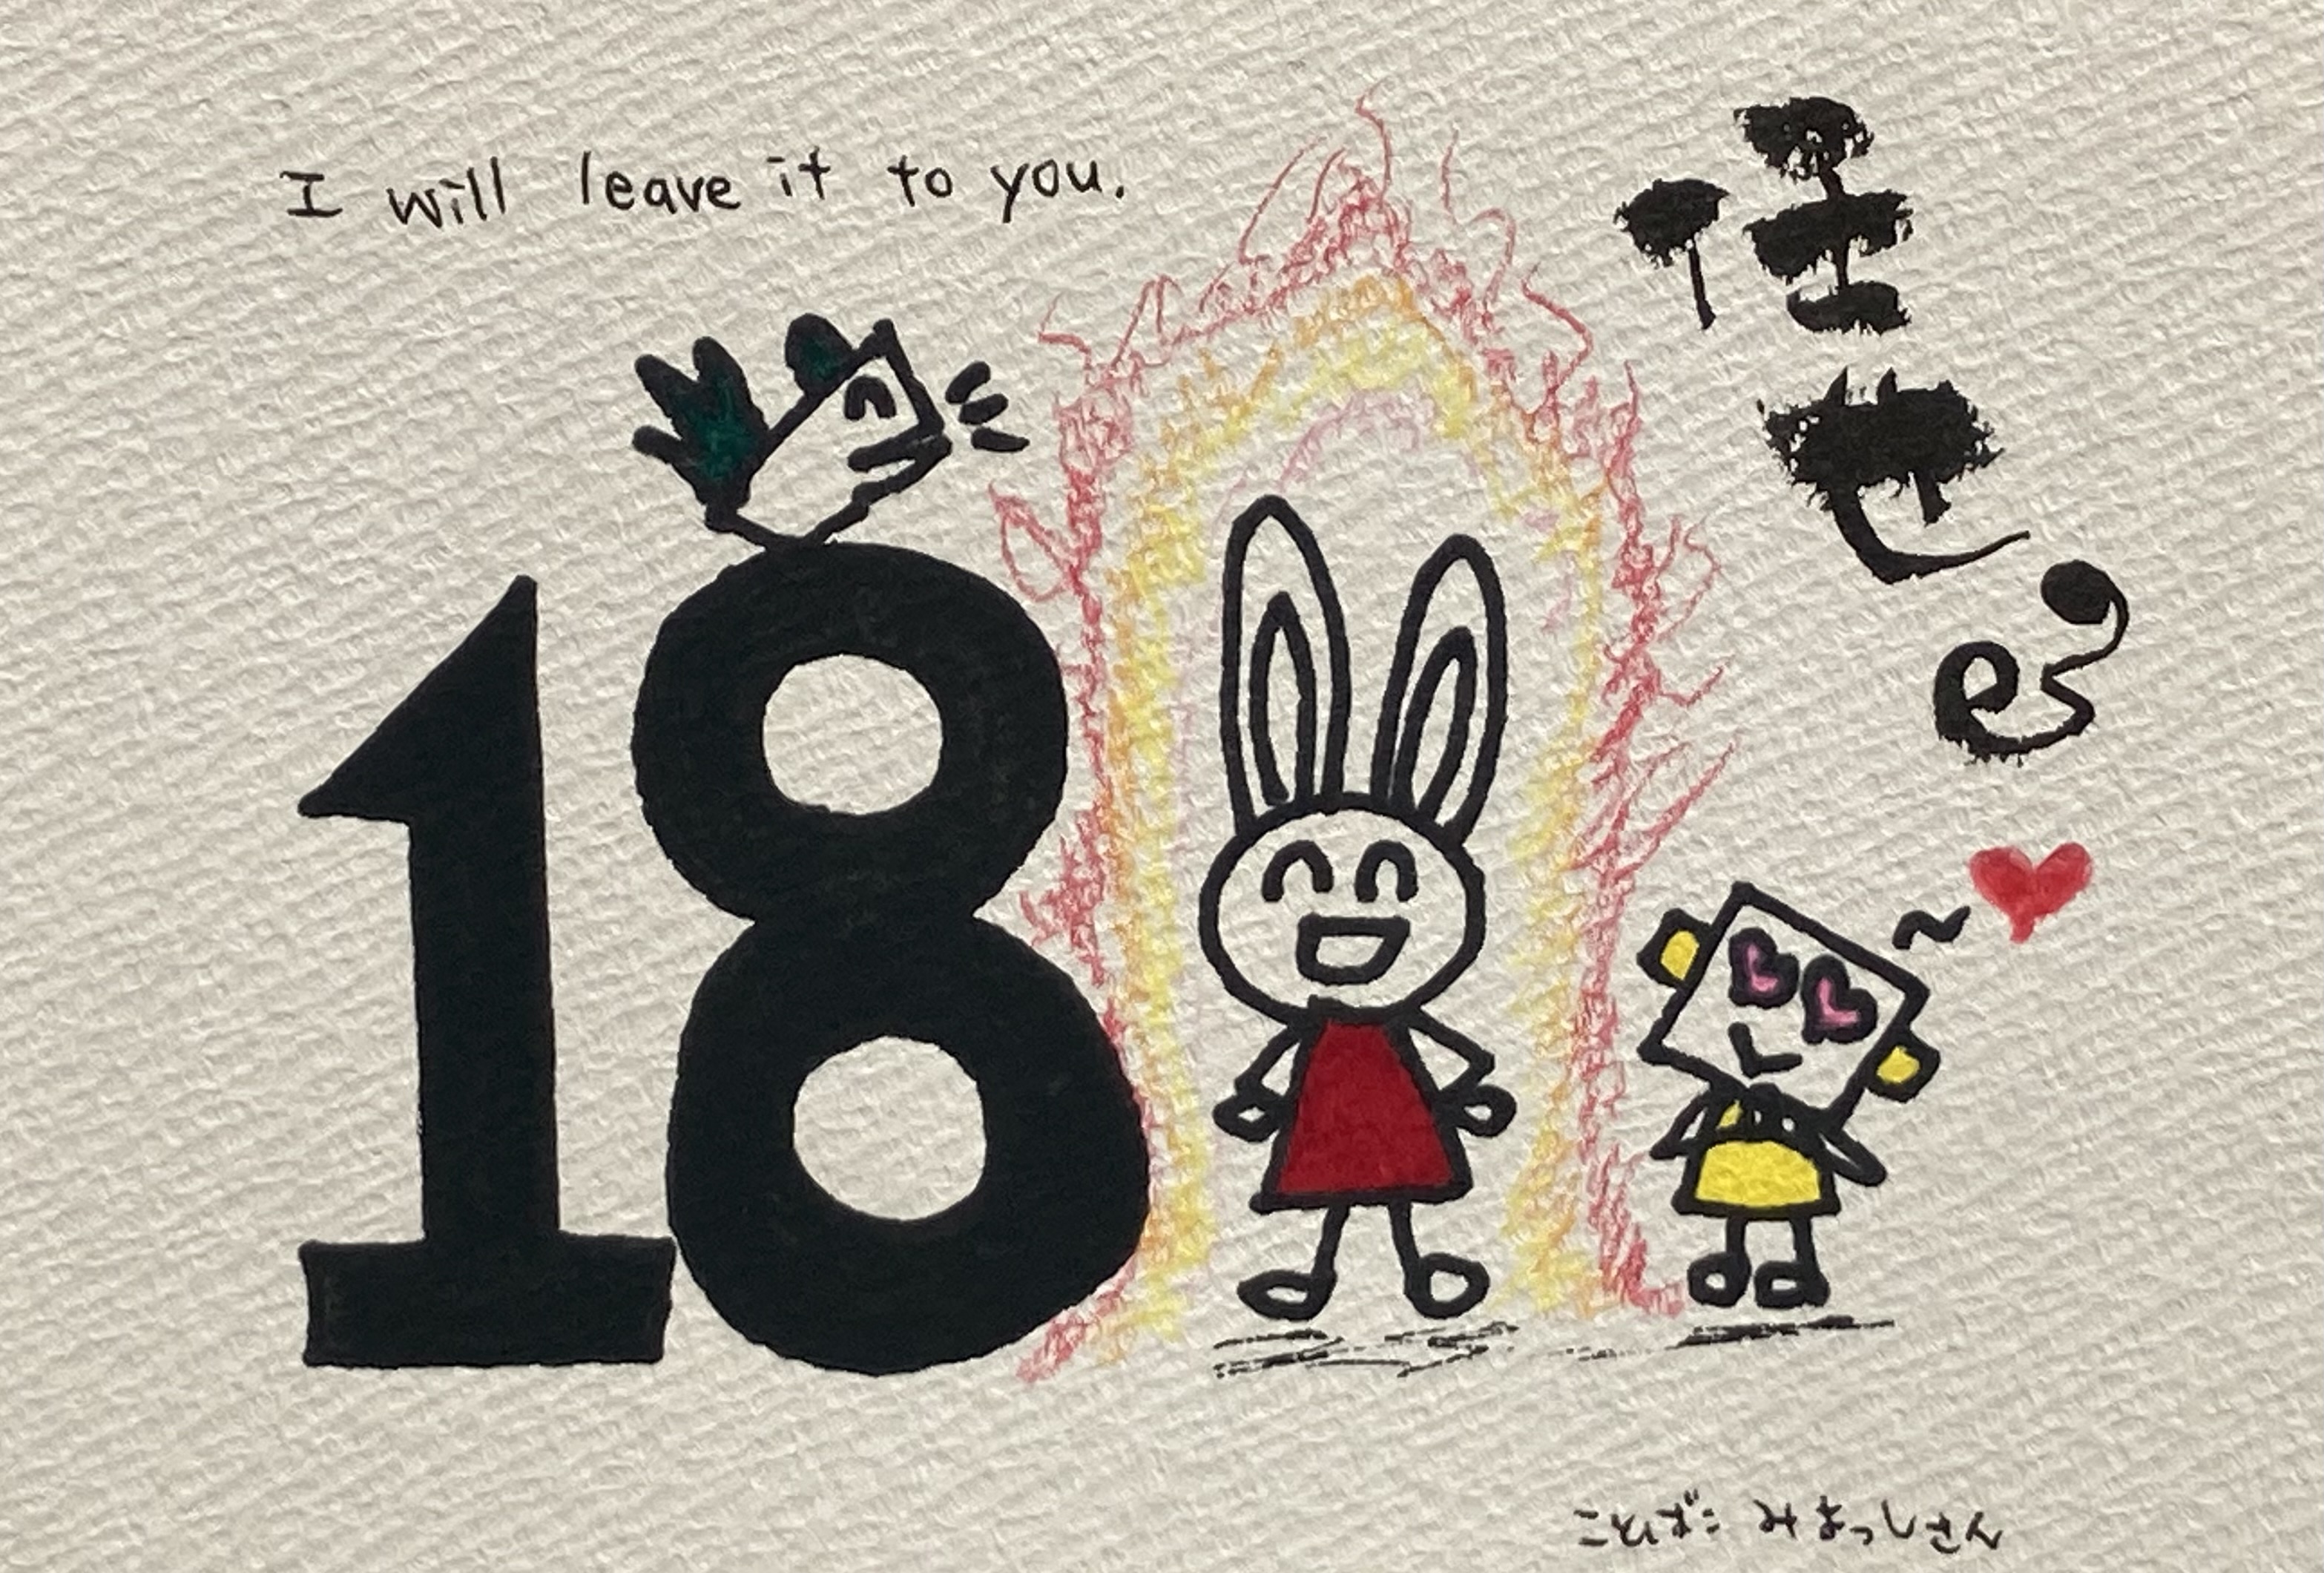 I will leave it to you.
任せる
18
ことば：みよっしさん